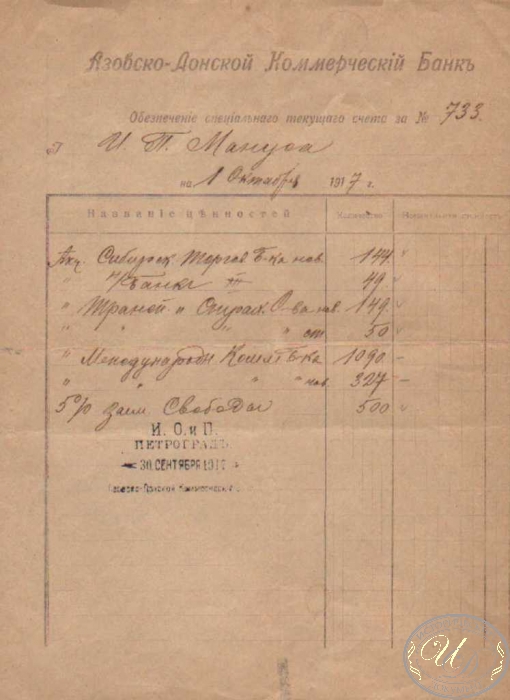 Азовско-Донской Коммерческій Банкъ
Обезпеченіе спеціальнаго текущаго счета за № 733.
И. П. Мануса
на 1 Октября 1917 г.
Названіе цѣнностей Количество
Акц. Сибирск Торгов Б-ка нов. 144 "
Банка III 49 "
" Трансп и Страх. О-ва нов. 149 "
" " " " ст 50 "
" Международн. Комм Б-ка 1090 –
" " " " нов. 327 –
5% заим Свободы 500 "
И. О. и П.
ПЕТРОГРАДЪ
30 СЕНТЯБРЯ 1917
Азовско-Донской Коммерческій